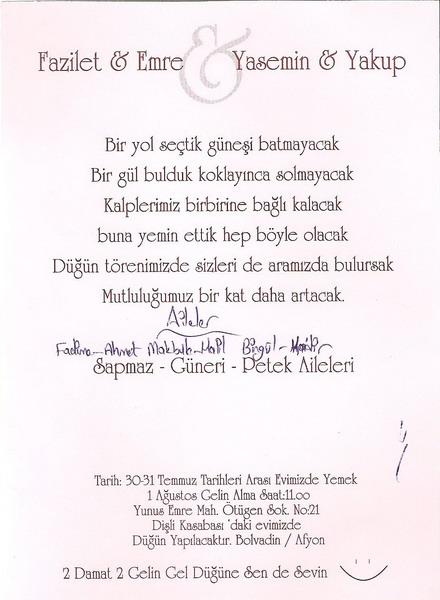 Fazilet & Emre & Yasemin & Yakup
Bir yol seçtik güneşi batmayacak
Bir gül bulduk koklayınca solmayacak
Kalplerimiz birbirine bağlı kalacak
buna yemin ettik hep böyle olacak
Düğün törenimizde sizleri de aramızda bulursak
Mutluluğumuz bir kat daha artacak.
Aileler
Fadime-Ahmet Makbule-Halil Birgül-
Sapmaz - Güneri - Petek Aileleri
Tarih: 30-31 Temmuz Tarihleri Arası Evimizde Yemek
1 Ağustos Gelin Alma Saat:11.00
Yunus Emre Mah. Ötügen Sok. No:21
Dişli Kasabası 'daki evimizde
Düğün Yapılacaktır. Bolvadin / Afyon
2 Damat 2 Gelin Gel Düğüne Sen de Sevin